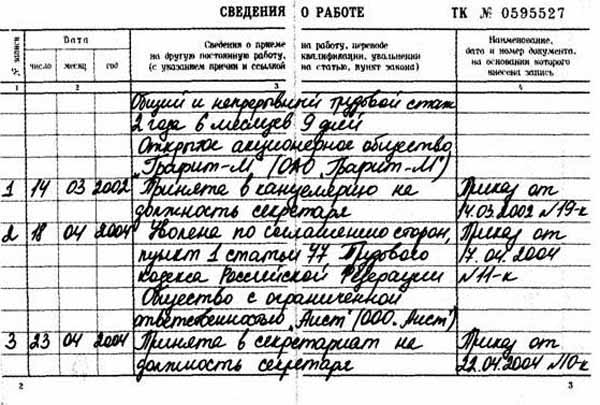 СВЕДЕНИЯ О РАБОТЕ ТК № 0595527
№ записи
Дата
Сведения о приеме на работу, переводе
на другую постоянную работу, квалификации, увольнении
(с указанием причин и ссылкой на статью, пункт закона)
Наименование,
дата и номер документа,
на основании которого
внесена запись
число месяц год
1 2 3 4
Общий и непрерывный трудовой стаж
2 года 6 месяцев 9 дней
Открытое акционерное общество
"Графит-М" (ОАО "Графит-М")
1 14 03 2002 Принята в канцелярию на Приказ от
должность секретаря 14.03.2002 №19-к
2 18 04 2004 Уволена по соглашению сторон, Приказ от
пункт 1 статьи 77 Трудового 17.04.2004
кодекса Российской Федерации №11-к
Общество с ограниченной
ответственностью "Аист" (ООО "Аист")
3 23 04 2004 Принята в секретариат на Приказ от
должность секретаря 22.04.2004 №10-к
2 3